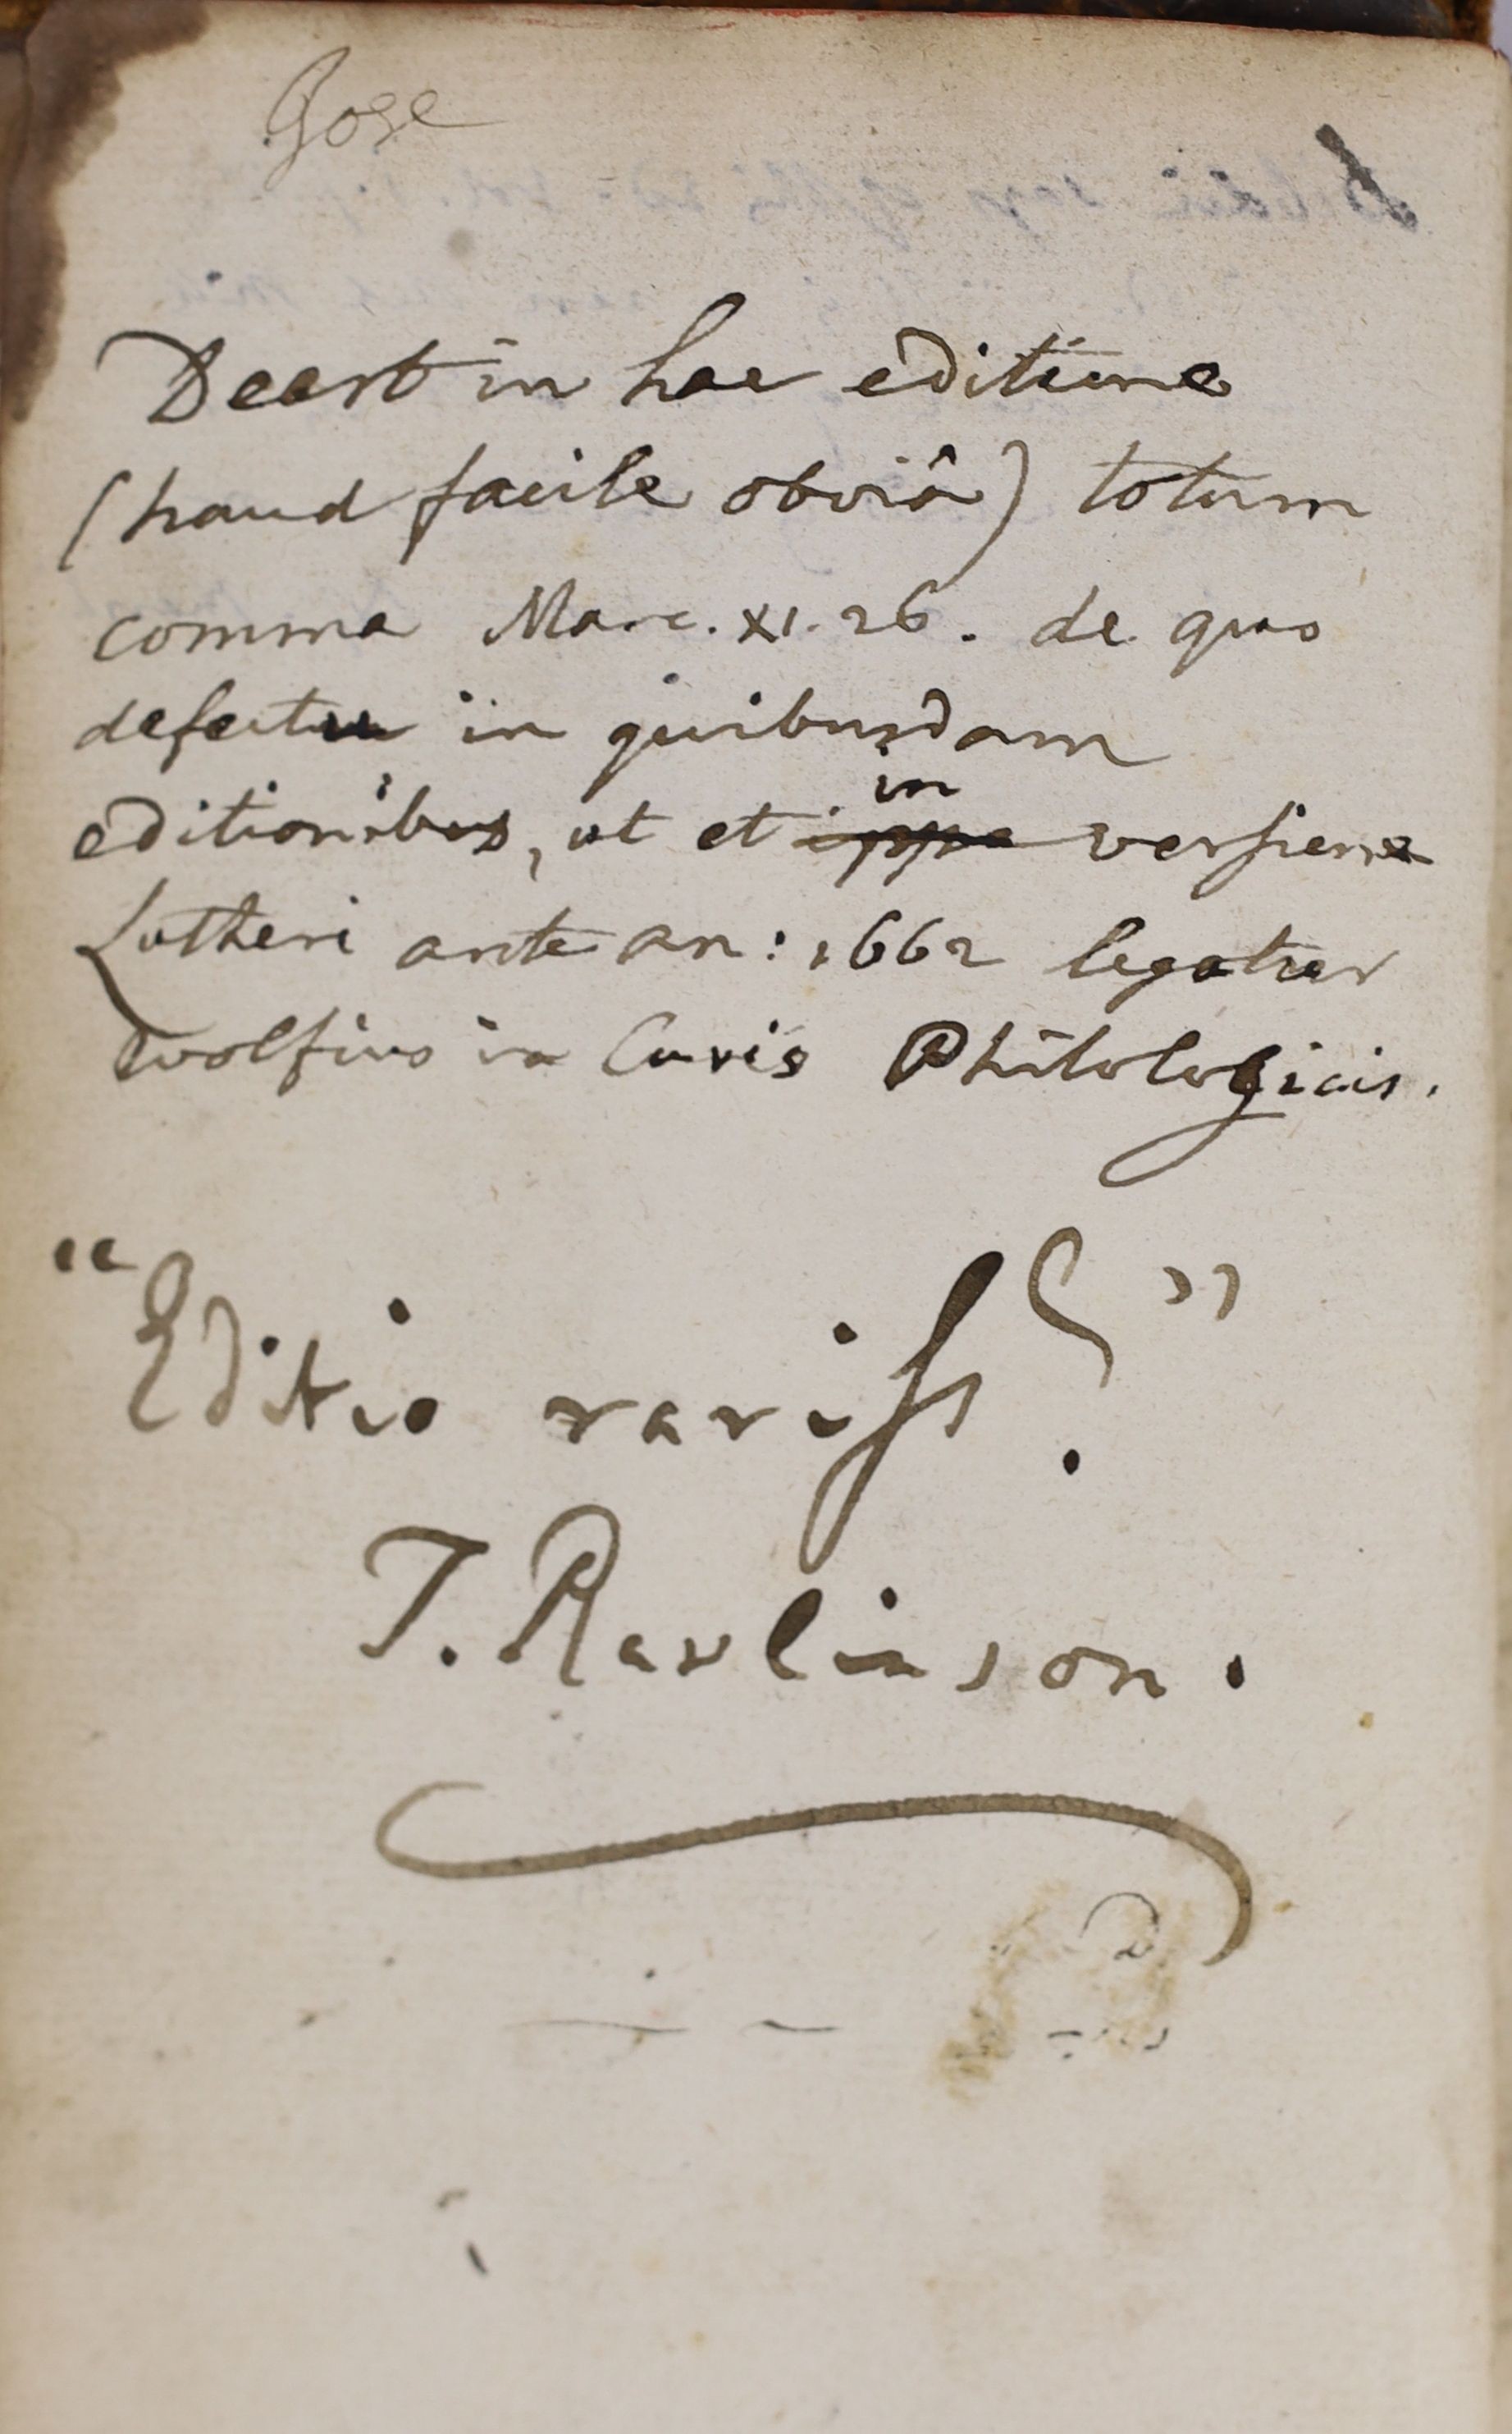 Gose
Deest in hac editione
(haud facile obviâ) totum
comma Marc. XI. 26. de quo
defectu in quibusdam
editionibus, ut et in versione
Lutheri ante an: 1662 legatur
Wolfius in Curis Philologicis.
“Editio rariss.”
T. Rawlinson.